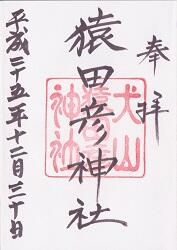 奉拝
猿田彦神社
犬山
神社
平成二十五年十二月三十日